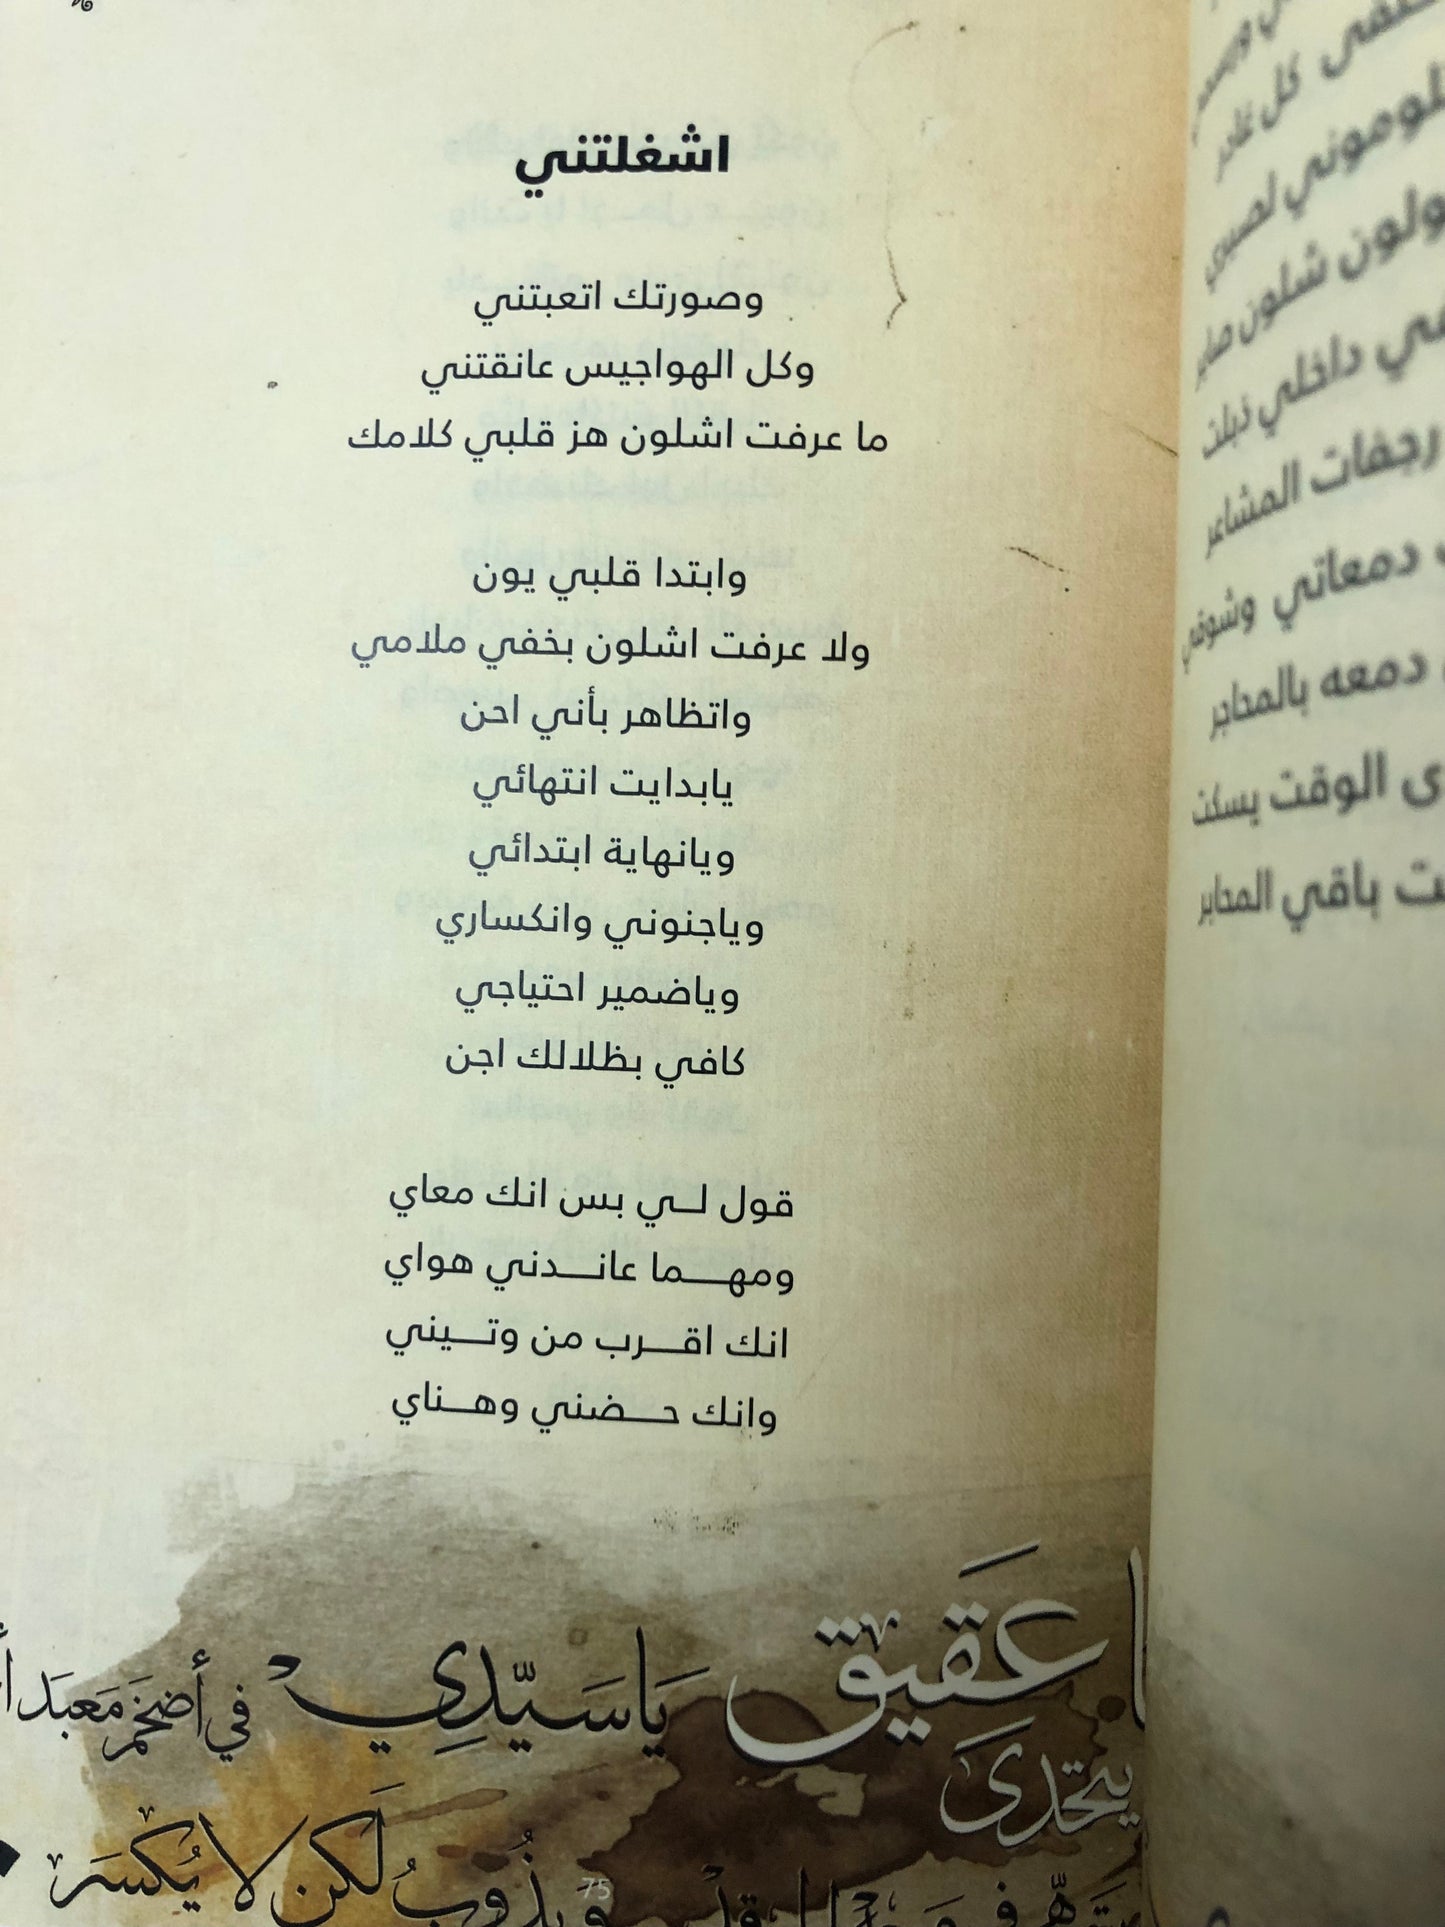 اشغلتني
وصورتك اتعبتني
وكل الهواجيس عانقتني
ما عرفت اشلون هز قلبي كلامك
وابتدا قلبي يون
ولا عرفت اشلون بخفي ملامي
واتظاهر بأني احن
يابدايت انتهائي
ويانهاية ابتدائي
وياجنوني وانكساري
وياضمير احتياجي
كافي بظلالك اجن
قول لـي بس انك معاي
ومهـما عانـدني هواي
انك اقـرب من وتـيني
وانك حـضني وهـناي
عَقيق يَا سَيّدِي في أضخَم مَعبَد
يتحَدى
ويذُوبُ لَكن لا يُكسَر
75
كل
لصبري
شلون صابر
داخلي ذبلت
رجفات المشاعر
دمعاتي وشوقي
دمعه بالمحابر
الوقت يسكن
باقي المحابر